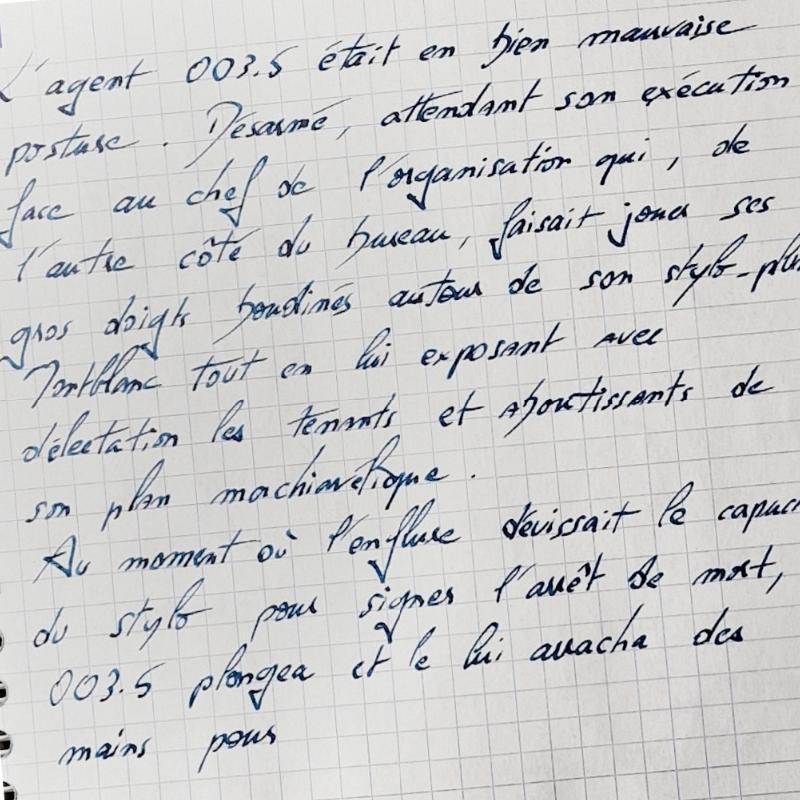 L'agent 003.5 était en bien mauvaise
posture. Désarmé, attendant son exécution
face au chef de l'organisation qui, de
l'autre côté du bureau, faisait jouer ses
gros doigts boudinés autour de son stylo-plu
Montblanc tout en lui exposant avec
délectation les tenants et aboutissants de
son plan machiavélique.
Au moment où l'enflure dévissait le capuc
du stylo pour signer l'arrêt de mort,
003.5 plongea et le lui arracha des
mains pour